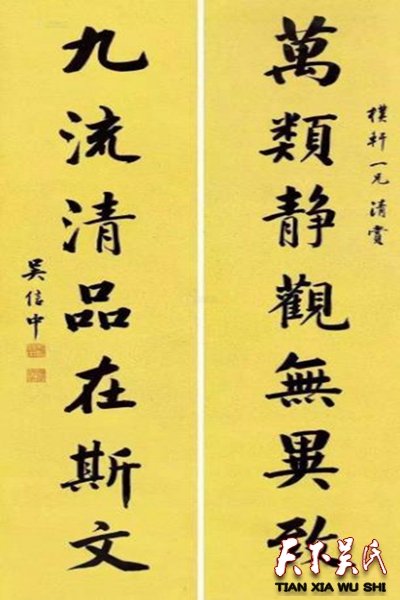 樸軒一兄清賞
萬類静觀無異致
九流清品在斯文
吳信中
天下吴氏
TIAN XIA WU SHI